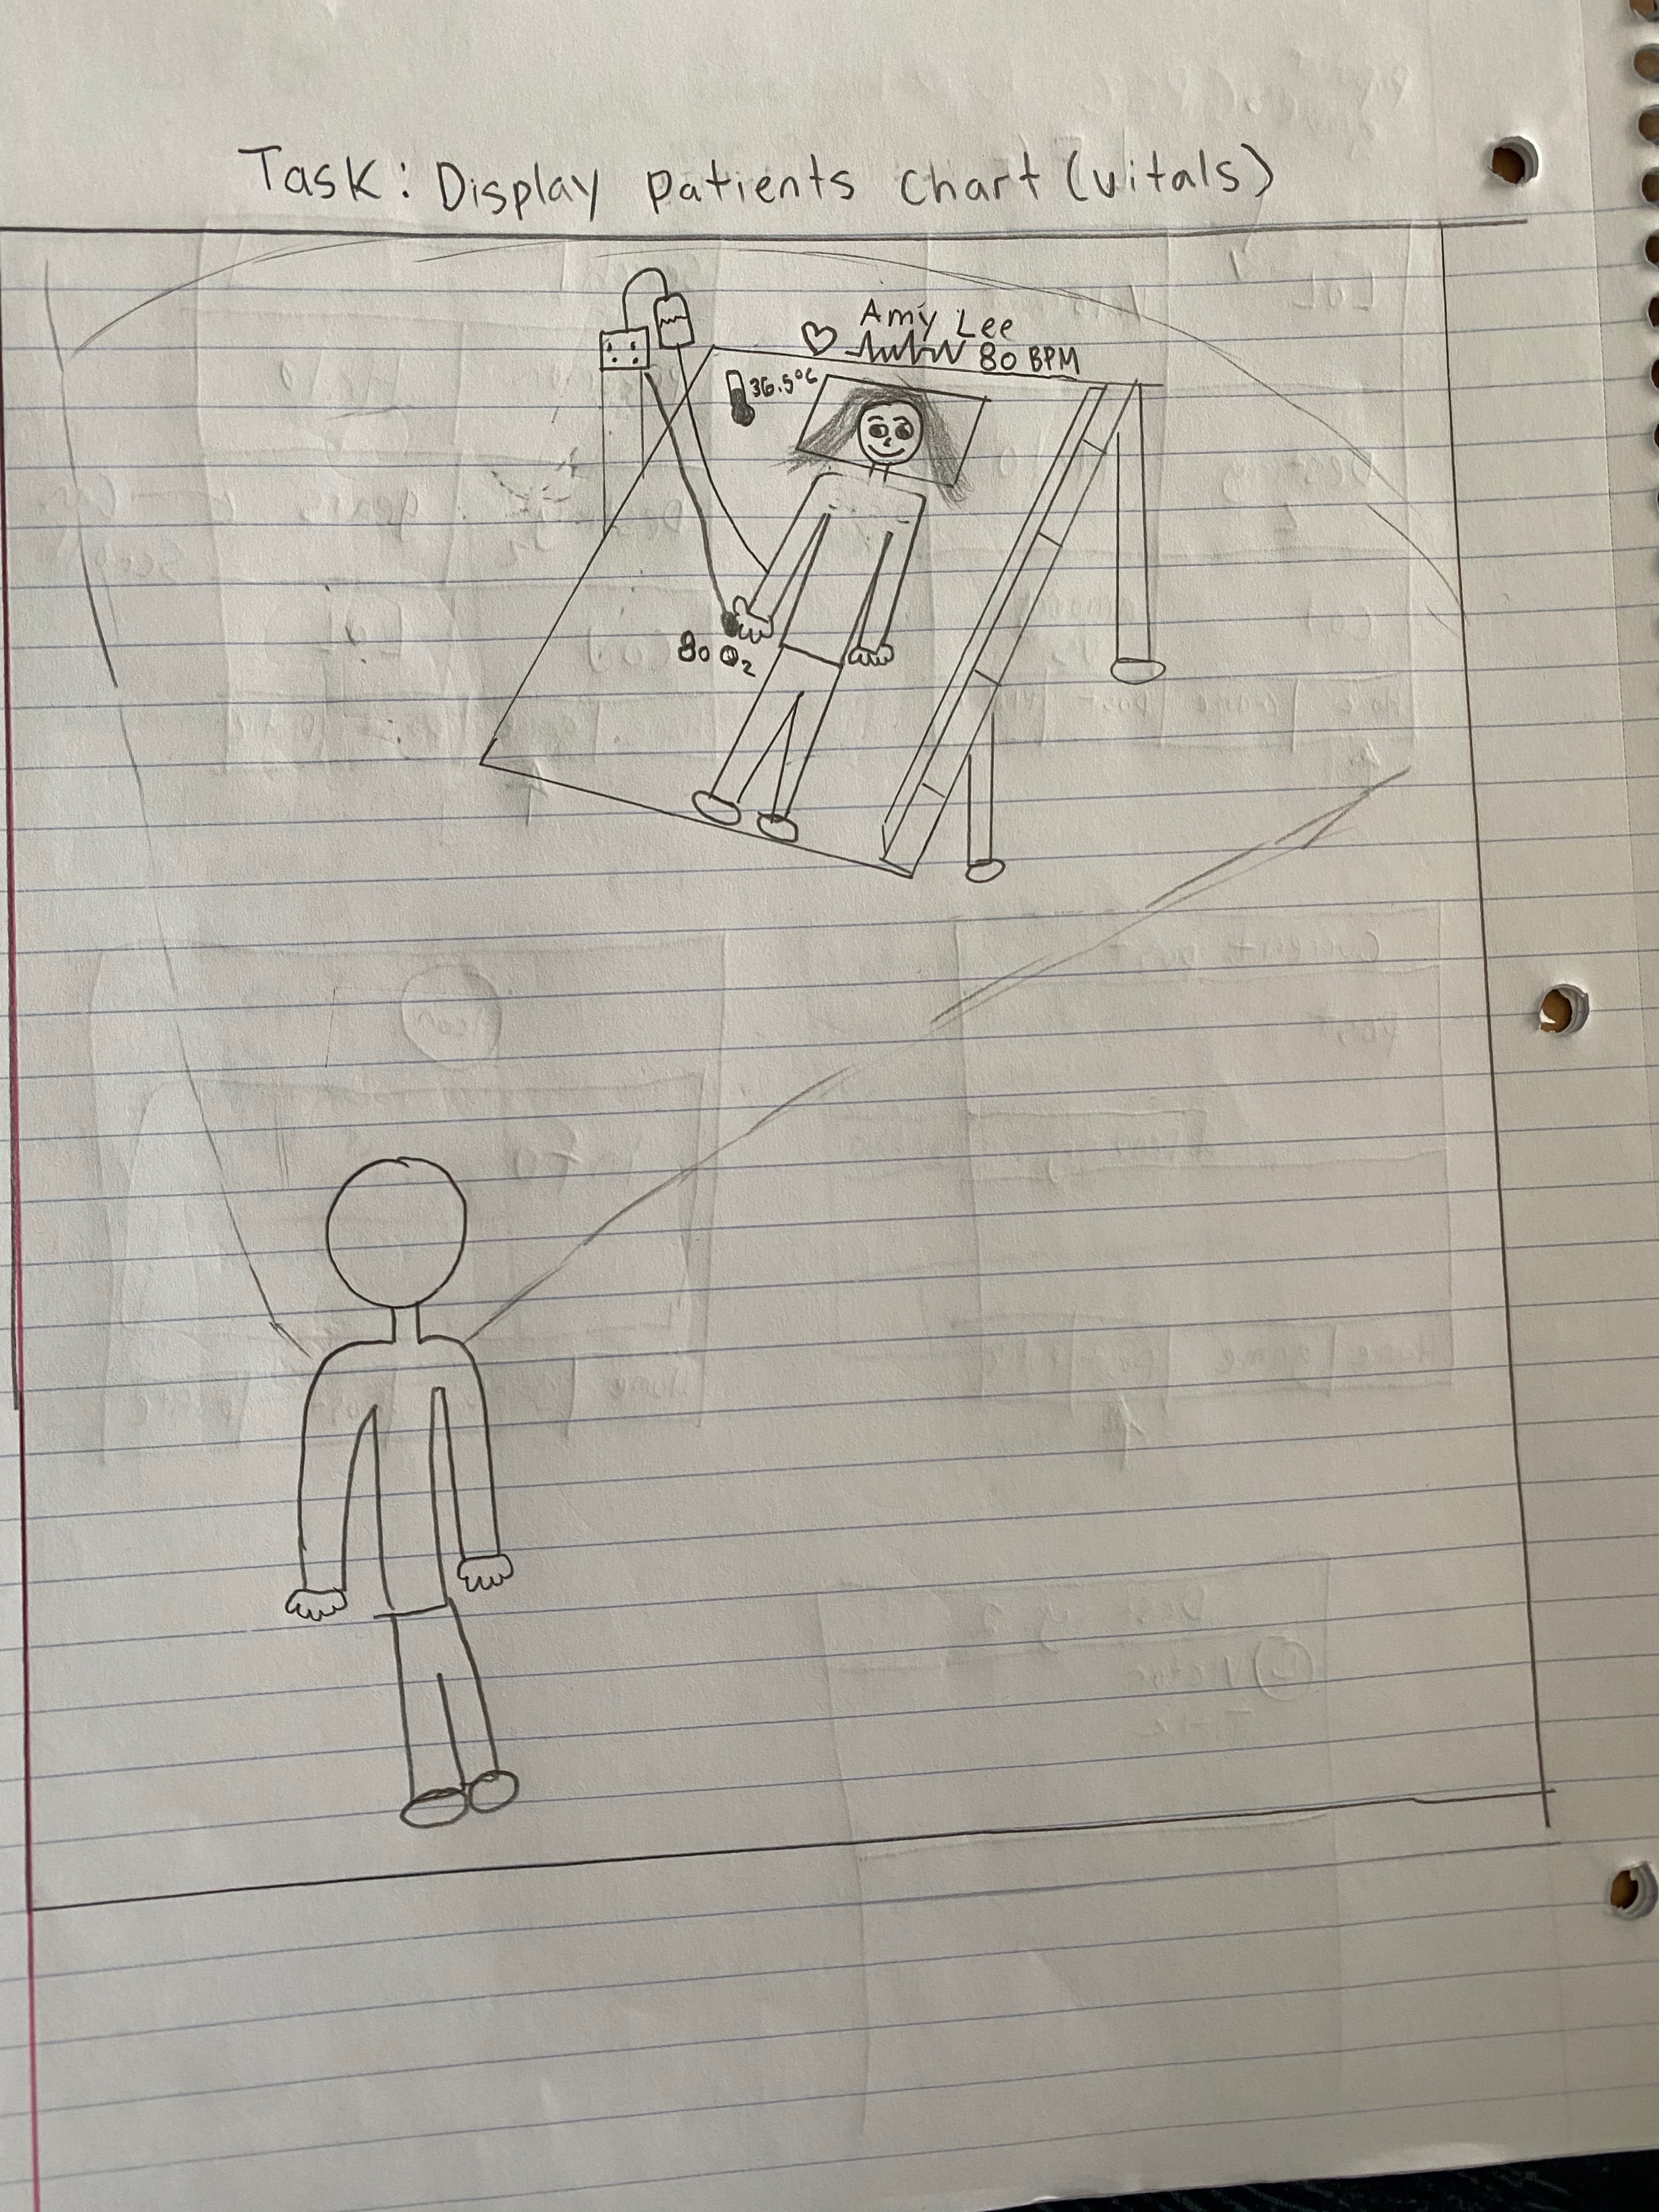 Task: Display patients chart (vitals)
Amy Lee
80 BPM
36.5°C
80 O2